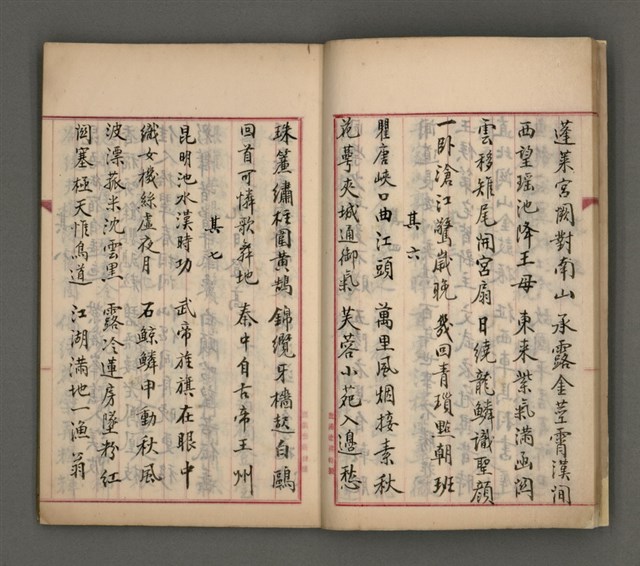 蓬萊宮闕對南山 承露金莖霄漢間
西望瑶池降王母 東来紫氣滿函関
雲移雉尾開宮扇 日繞龍鱗識聖顔
一卧滄江驚歲晚 幾回青瑣點朝班
其六
瞿唐峽口曲江頭 萬里風烟接素秋
花萼夾城通御氣 芙蓉小苑入邊愁
珠簾繡柱圍黃鵠 錦纜牙檣起白鷗
回首可憐歌舞地 秦中自古帝王州
其七
昆明池水漢時功 武帝旌旗在眼中
織女機絲虛夜月 石鯨鱗甲動秋風
波漂菰米沈雲黑 露冷蓮房墜粉紅
関塞極天惟鳥道 江湖滿地一漁翁